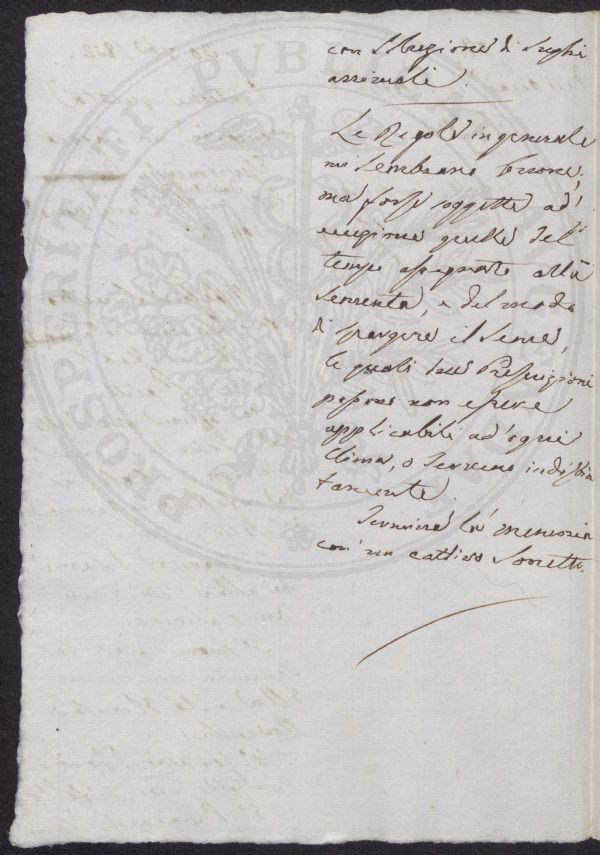 con Stregione di Sughi
animali.
Le Regole in generale
mi sembrano buone,
ma forse soggette ad'
eccezione quelle del
tempo assegnato alla
sementa, e del modo
di spargere il seme,
le quali due Prescrizioni
possono non essere
applicabili ad'ogni
clima, o terreno indistin
tamente.
Termina la memoria
con' un cattivo Sonetto.
PROSPERITATI PUBLICAE AUGENDAE